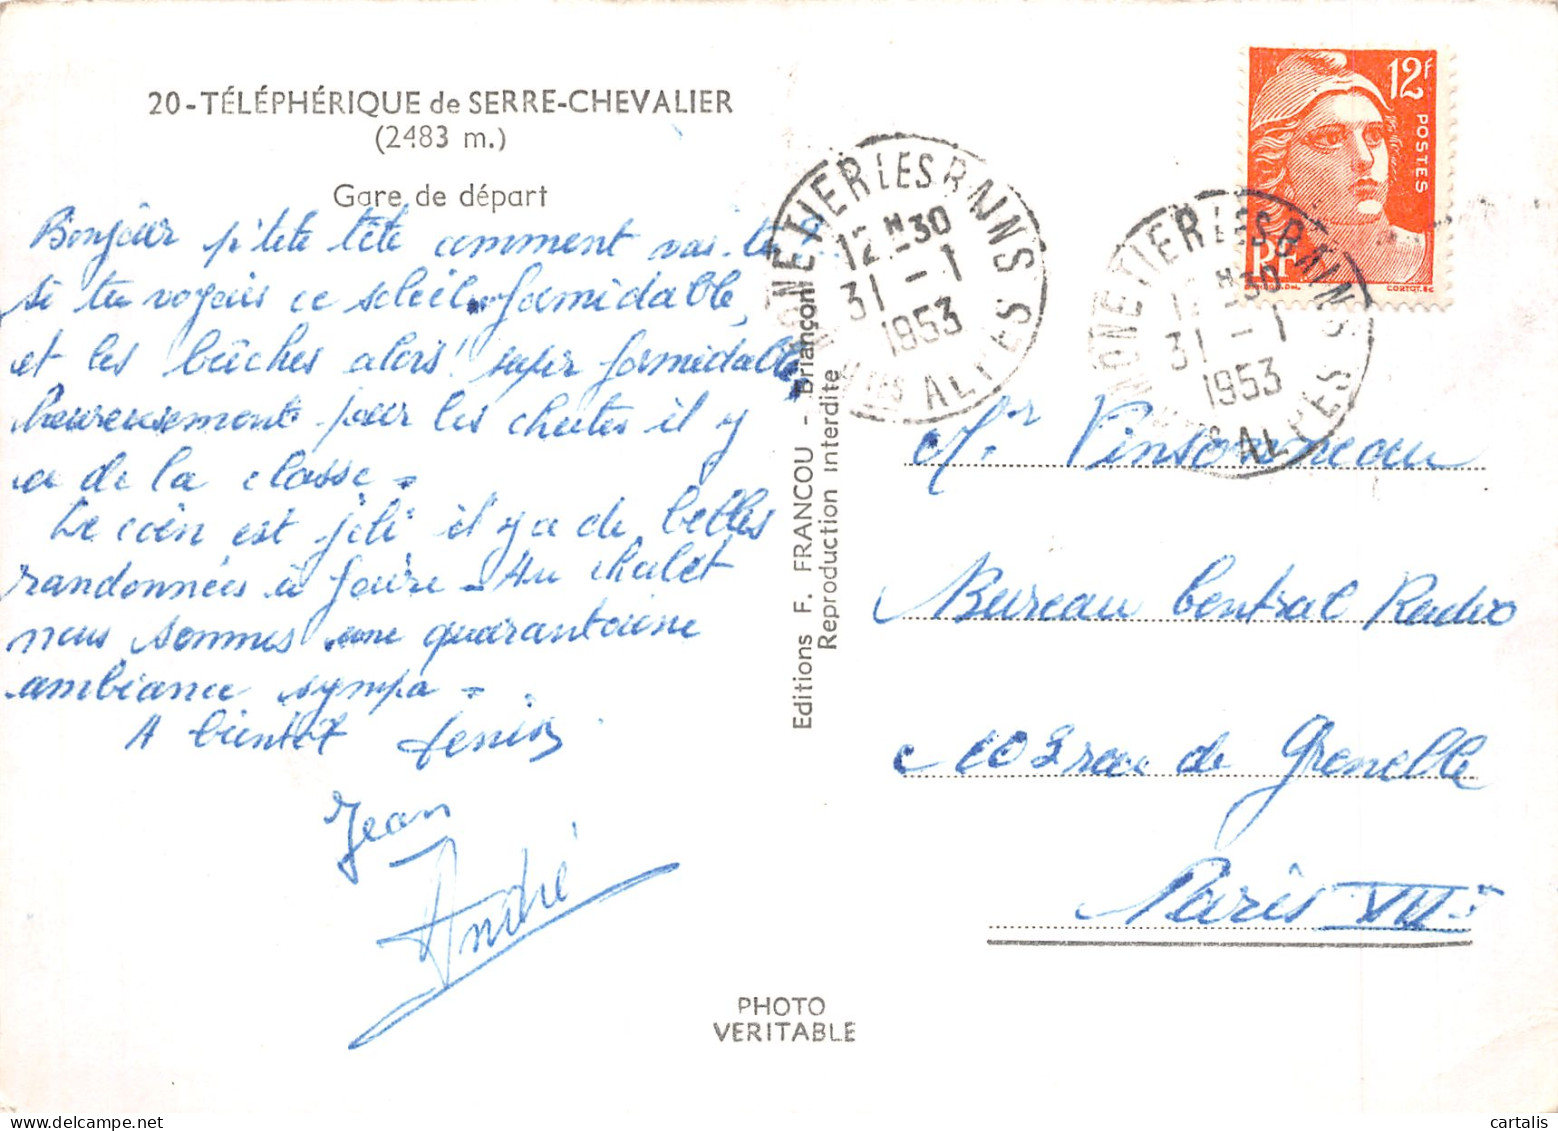 20-TÉLÉPHÉRIQUE de SERRE-CHEVALIER
(2483 m.)
Gare de départ
Bonjour p'tete tête comment vas-tu ?
si tu voyais ce soleil formidable,
et les bûches alors! super formidable
heureusement pour les chutes il y
a de la classe -
Le coin est joli il y a de belles
randonnées à faire - Au chalet
nous sommes une quarantaine
ambiance sympa -
A bientôt Denis
Jean
André
Editions F. FRANCOU - Briançon
Reproduction interdite
PHOTO
VERITABLE
MONETIER LES BAINS
12H30
31-1
1953
Htes ALPES
MONETIER LES BAINS
12H30
31-1
1953
Htes ALPES
12F
POSTES
RF
GANDON.DEL.
CORTOT.SC
Mr Vinsonneau
Bureau Central Radio
103 rue de Grenelle
Paris VII e
cartalis